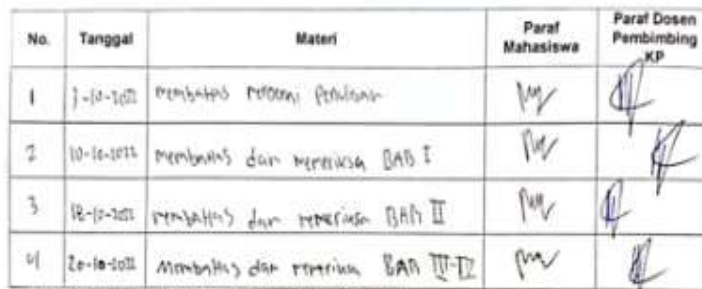 No. Tanggal Materi Paraf Mahasiswa Paraf Dosen Pembimbing KP
1 3-10-2022 membahas Penulisan
2 10-10-2022 membahas dan memeriksa BAB I
3 18-10-2022 membahas dan memeriksa BAB II
4 20-10-2022 Membahas dan memeriksa BAB III-IV